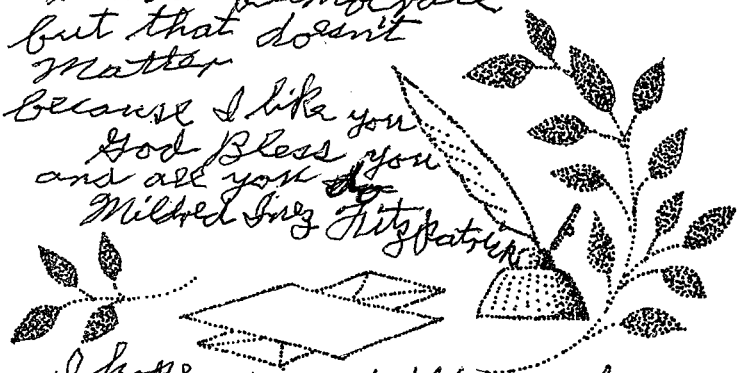 but that doesn't
Matter
because I like you
God Bless you
and all you do
Mildred Inez Fitzpatrick
I hope